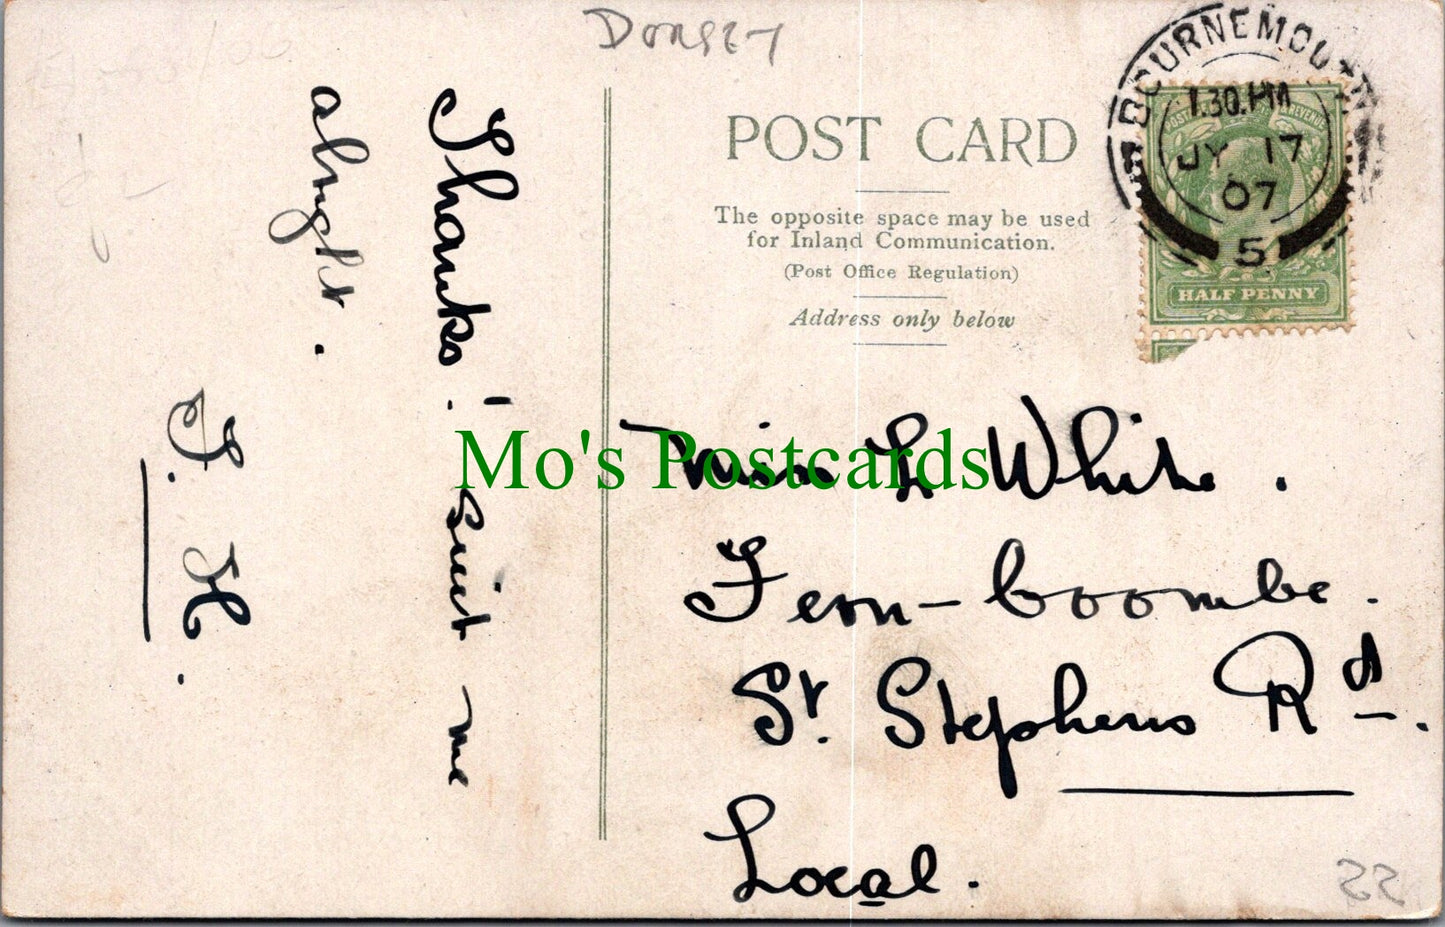 Dorset
POST CARD
The opposite space may be used
for Inland Communication.
(Post Office Regulation)
Address only below
BOURNEMOUTH
1.30.PM
JY 17
07
5
HALF PENNY
Thanks! suit me
alright.
H.
Mo's Postcards
Miss L White.
Fern-coombe.
St. Stephens Rd.
Local.
55